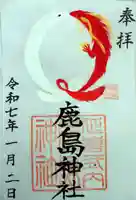 奉拝
鹿島神社
令和七年一月二日